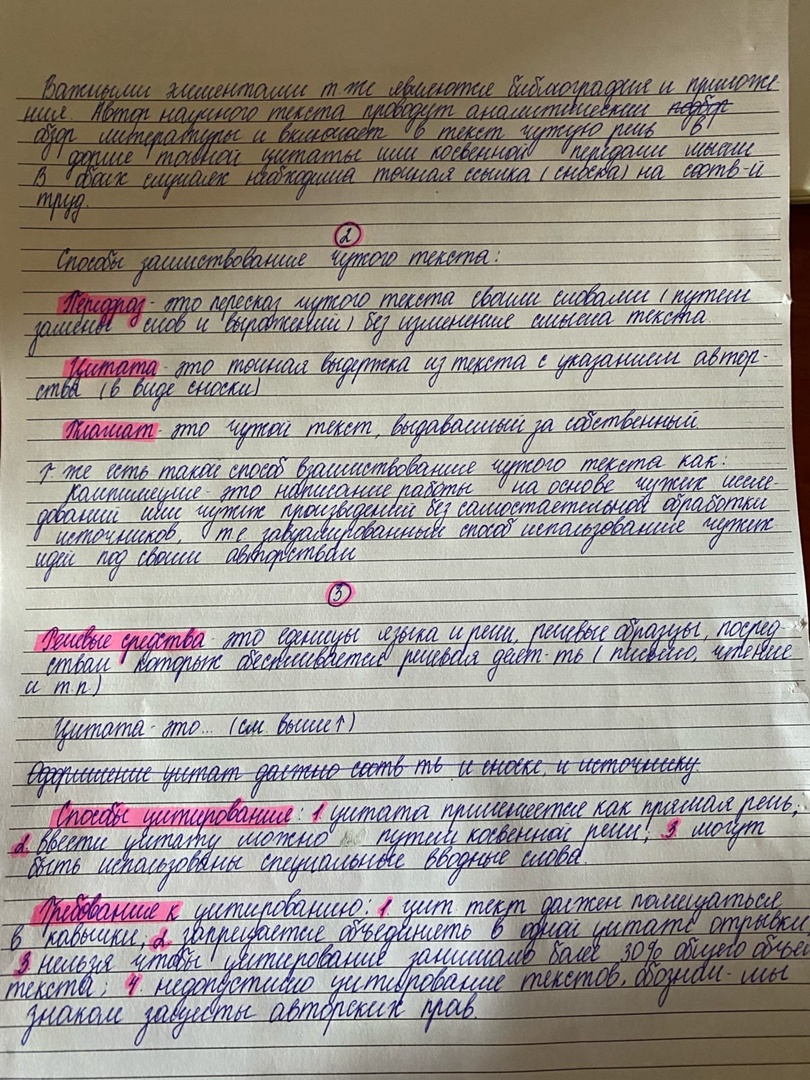 Важными элементами т.же являются библиография и приложе
ния. Автор научного текста проводит аналитический подбор
обзор литературы и включает в текст чужую речь в
форме точной цитаты или косвенной передачи мысли
В обоих случаях необходима точная ссылка (сноска) на соотв-й
труд.
2
Способы заимствования чужого текста:
Перифраз - это пересказ чужого текста своими словами (путем
замены слов и выражений) без изменения смысла текста
Цитата - это точная выдержка из текста с указанием автор-
ства (в виде сноски)
Плагиат - это чужой текст, выдаваемый за собственный
Т. же есть такой способ взаимствования чужого текста как:
Компиляция - это написание работы на основе чужих иссле-
дований или чужих произведений без самостоятельной обработки
источников, т.е завуалированный способ использования чужих
идей под своим авторством
3
Речевые средства - это еденицы языка и речи, речевые образцы, посред-
ством которых обеспечивается речевая деят-ть (письмо, чтение
и т.п)
Цитата - это... (см. выше↑)
Оформление цитат должно соотв-ть и сноске, и источнику
Способы цитирования: 1 цитата применяется как прямая речь;
2. ввести цитату можно путем косвенной речи; 3 могут
быть использованы специальные вводные слова.
Требования к цитированию: 1. цит. текст должен помещаться
в кавычки; 2. запрещается объединять в одной цитате отрывки,
3 нельзя чтобы цитирование занимало более 30% общего объем
текста; 4. недопустимо цитирование текстов, обознач-мы
знаком защиты авторских прав.